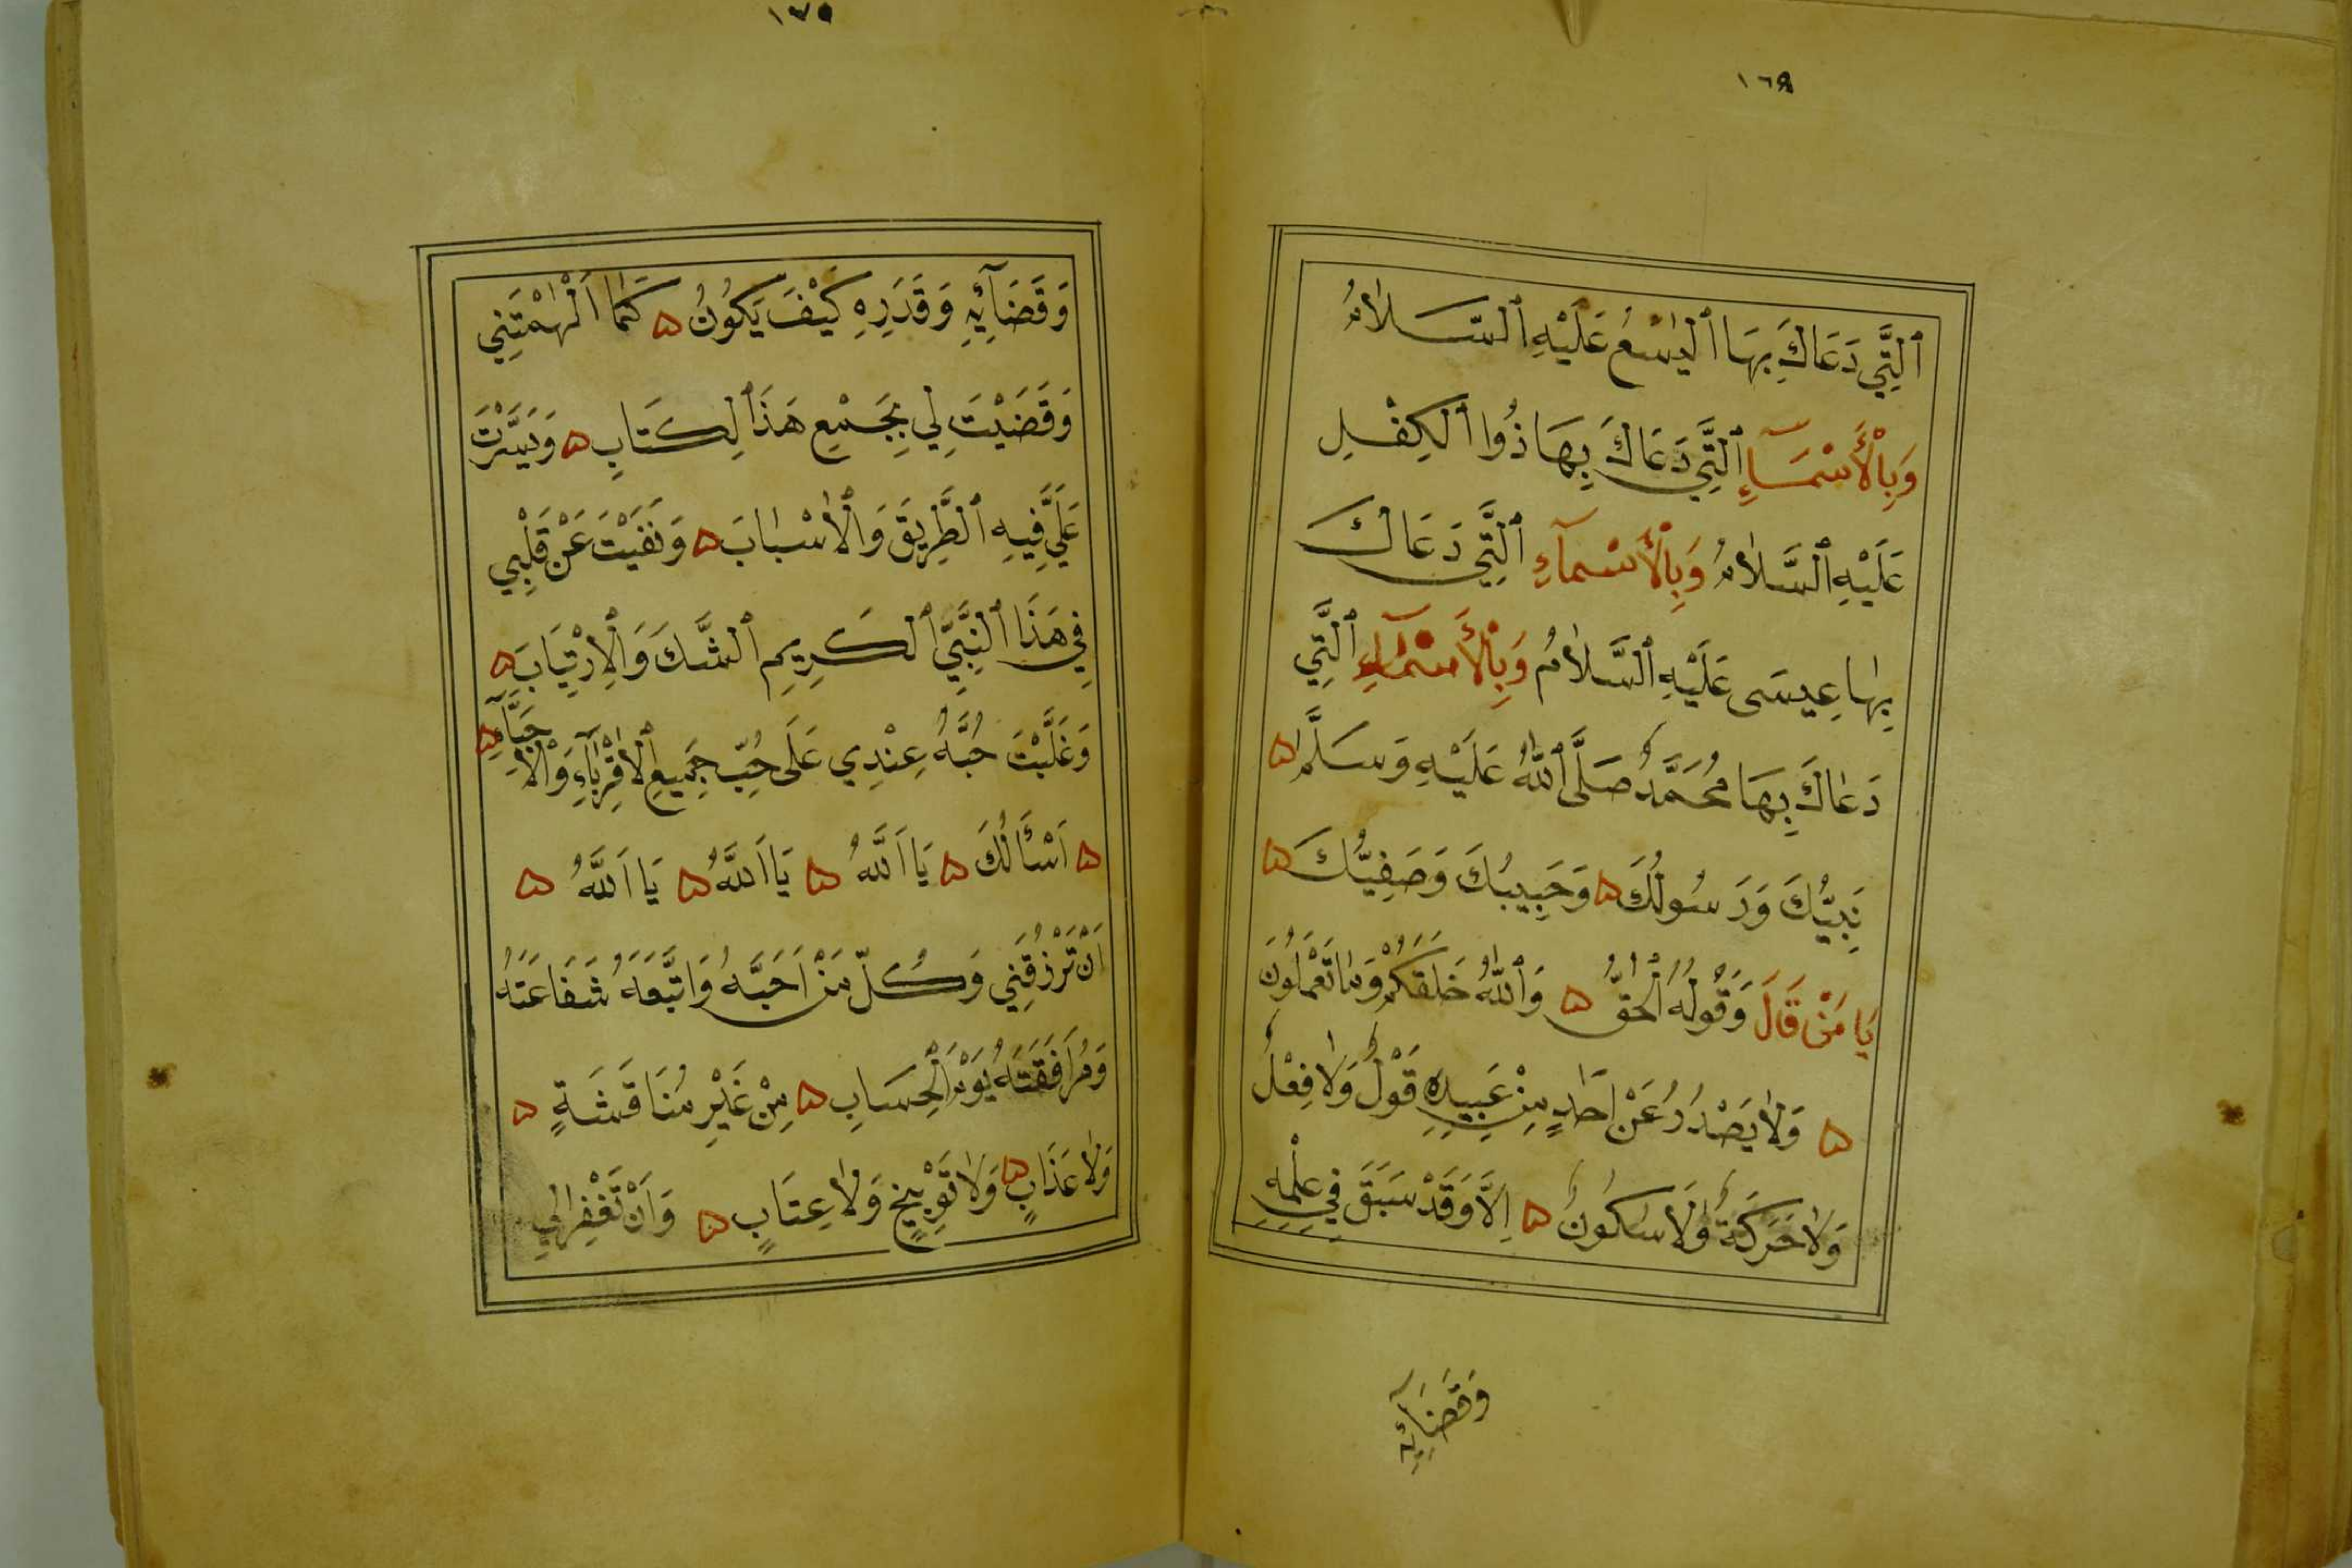 ١٦٩
ٱلَّتِي دَعَاكَ بِهَا ٱلْيَسَعُ عَلَيْهِ ٱلسَّلَامُ
وَبِالْأَسْمَآءِ ٱلَّتِي دَعَاكَ بِهَا ذُوا ٱلْكِفْلِ
عَلَيْهِ ٱلسَّلَامُ وَبِالْأَسْمَآءِ ٱلَّتِي دَعَاكَ
بِهَا عِيسَى عَلَيْهِ ٱلسَّلَامُ وَبِالْأَسْمَآءِ ٱلَّتِي
دَعَاكَ بِهَا مُحَمَّدٌ صَلَّى ٱللَّهُ عَلَيْهِ وَسَلَّمَ ۵
نَبِيُّكَ وَرَسُولُكَ ۵ وَحَبِيبُكَ وَصَفِيُّكَ ۵
يَا مَنْ قَالَ وَقَوْلُهُ ٱلْحَقُّ ۵ وَٱللَّهُ خَلَقَكُمْ وَمَا تَعْمَلُونَ
۵ وَلَا يَصْدُرُ عَنْ اَحَدٍ مِنْ عَبِيدِهِ قَوْلٌ وَلَا فِعْلٌ
وَلَا حَرَكَةٌ وَلَا سُكُونٌ ۵ اِلَّا وَقَدْ سَبَقَ فِي عِلْمِهِ
وَقَضَآئِهِ
١٧٠
وَقَضَآئِهِ وَقَدَرِهِ كَيْفَ يَكُونُ ۵ كَمَا اَلْهَمْتَنِي
وَقَضَيْتَ لِي بِجَمْعِ هَذَا ٱلْكِتَابِ ۵ وَيَسَّرْتَ
عَلَيَّ فِيهِ ٱلطَّرِيقَ وَٱلْأَسْبَابَ ۵ وَنَفَيْتَ عَنْ قَلْبِي
فِي هَذَا ٱلنَّبِيِّ ٱلْكَرِيمِ ٱلشَّكَّ وَٱلْاِرْتِيَابَ ۵
وَغَلَّبْتَ حُبَّهُ عِنْدِي عَلَى حُبِّ جَمِيعِ ٱلْأَقْرِبَآءِ وَٱلْأَحِبَّآءِ ۵
۵ اَسْأَلُكَ ۵ يَا اَللَّهُ ۵ يَا اَللَّهُ ۵ يَا اَللَّهُ ۵
اَنْ تَرْزُقَنِي وَكُلَّ مَنْ اَحَبَّهُ وَاتَّبَعَهُ شَفَاعَتَهُ
وَمُرَافَقَتَهُ يَوْمَ ٱلْحِسَابِ ۵ مِنْ غَيْرِ مُنَاقَشَةٍ ۵
وَلَا عَذَابٍ ۵ وَلَا تَوْبِيخٍ وَلَا عِتَابٍ ۵ وَاَنْ تَغْفِرَ لِي